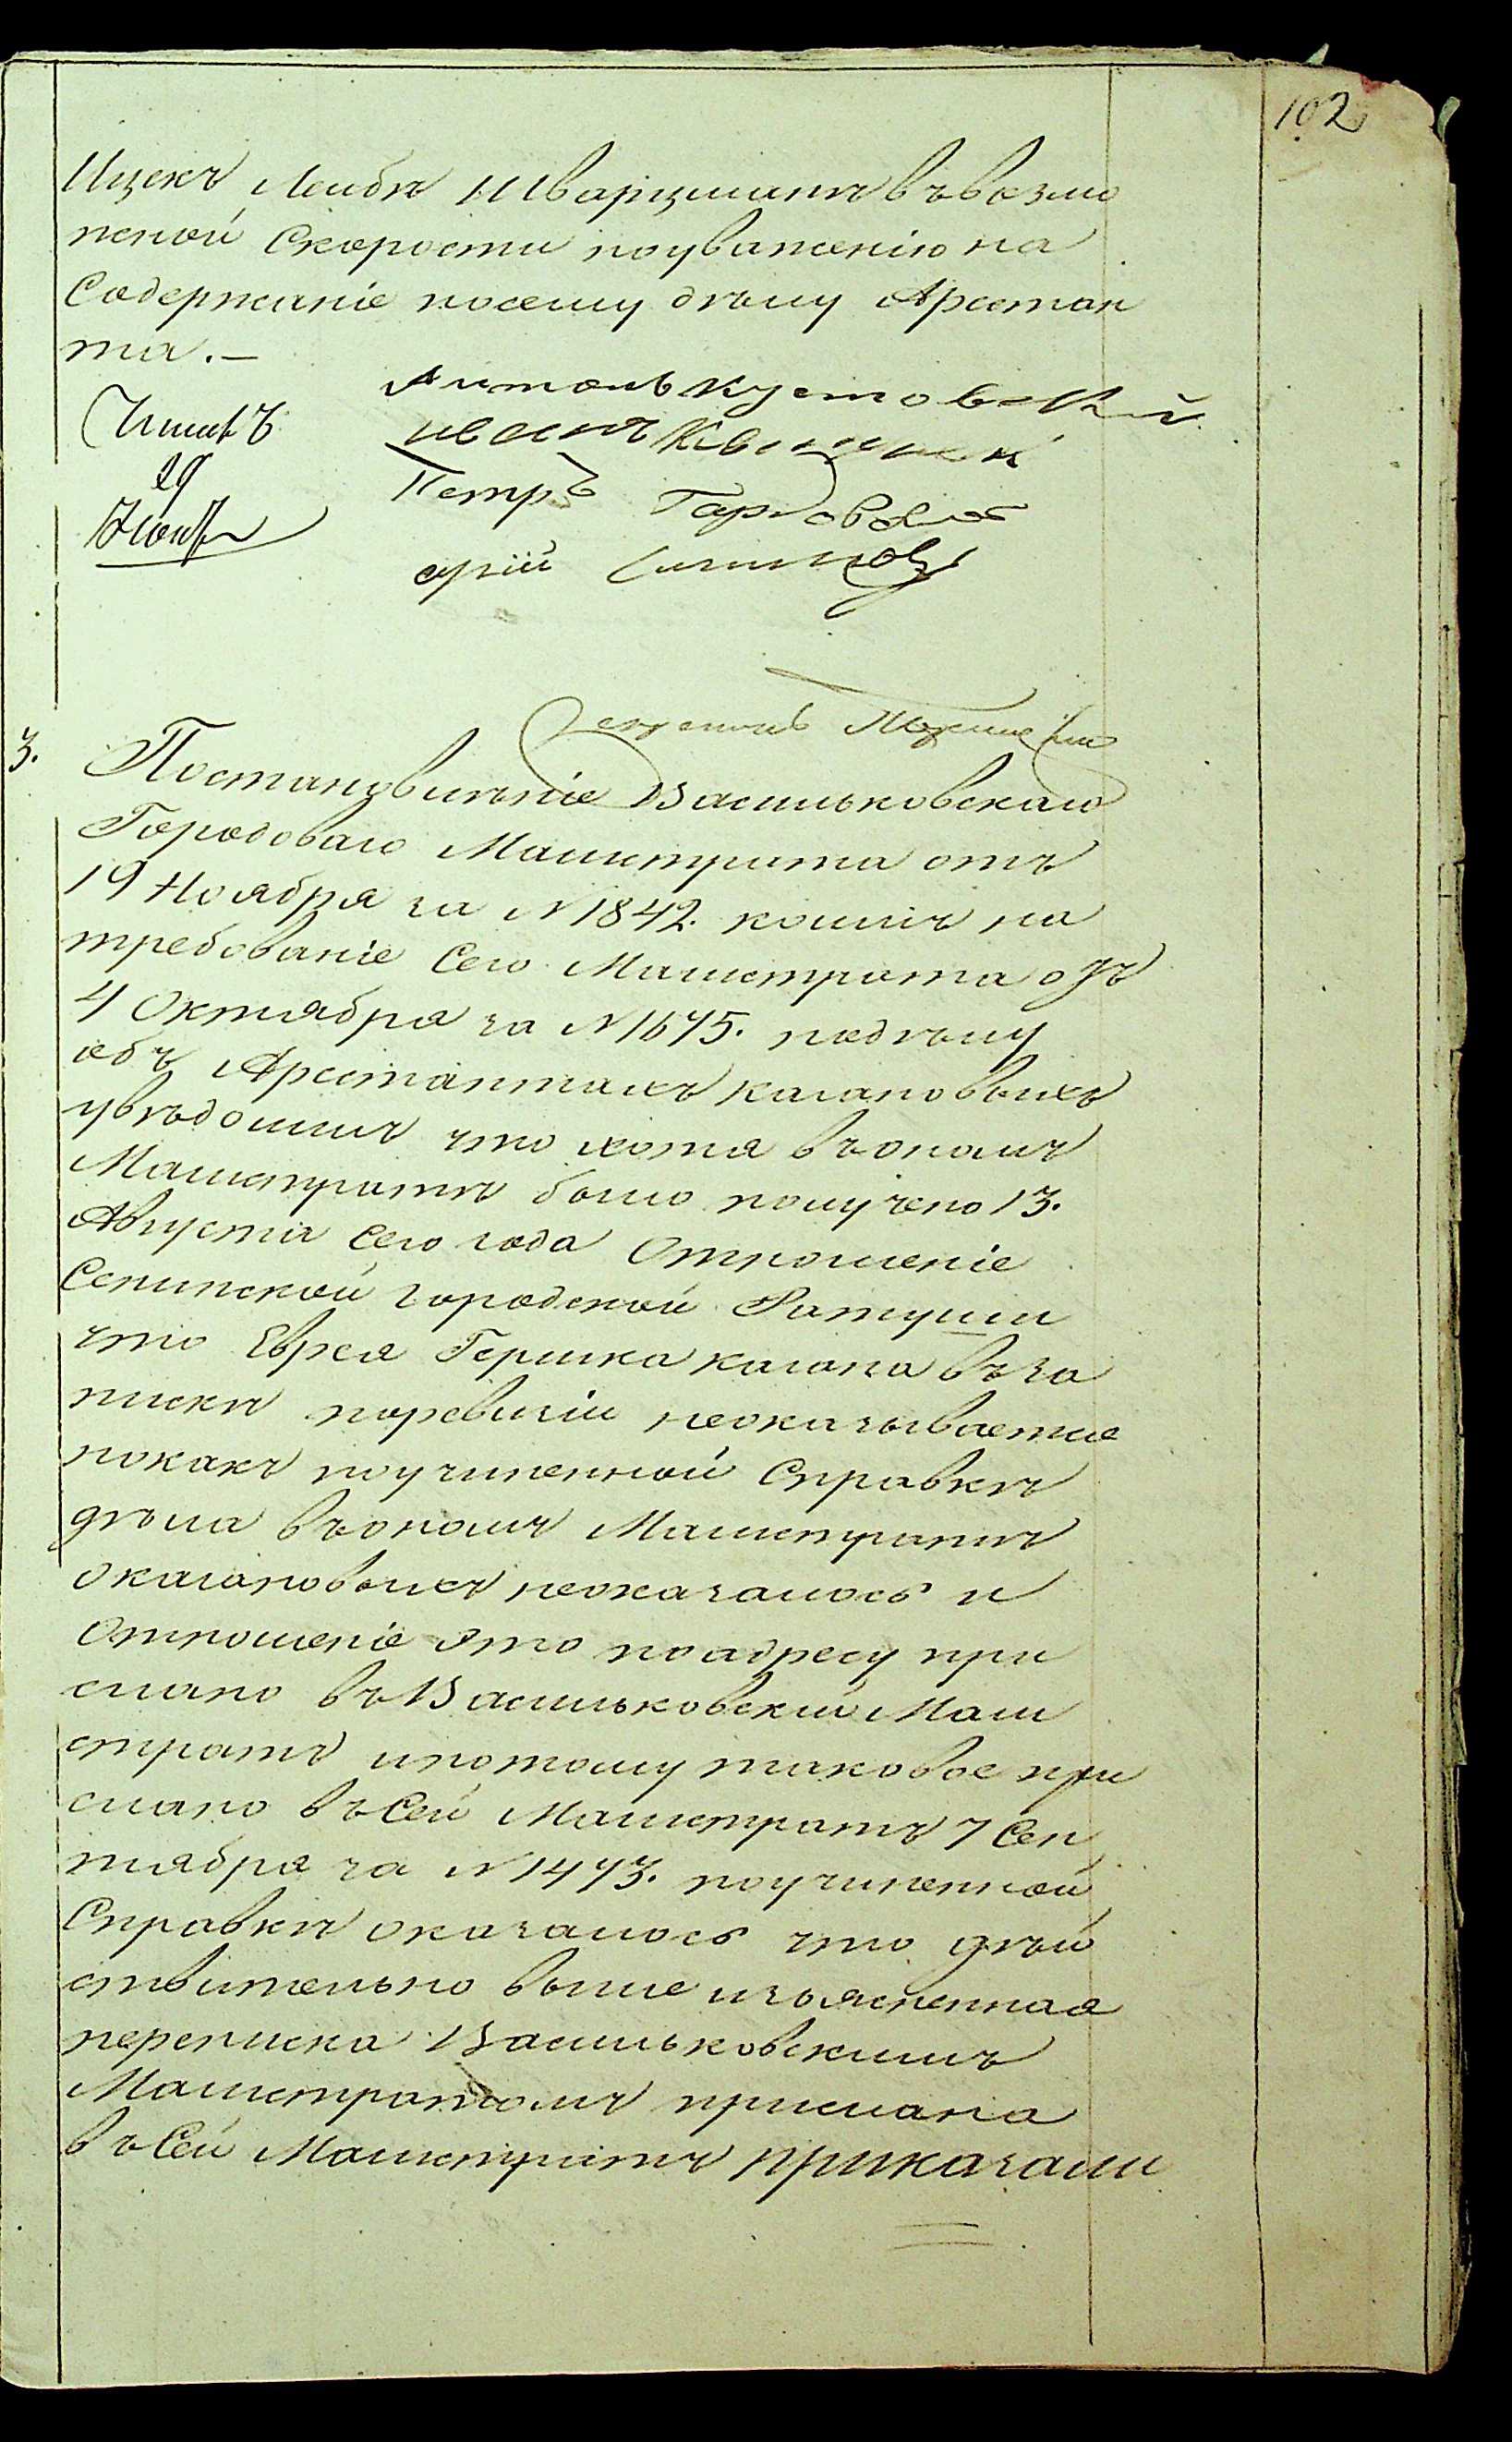 102
Ицекъ Лейбѣ Шварцманѣ въ возмо
жной Скорости поуваженію на
Содержаніе посему дѣлу Арестан
та. —
Антонъ Кустовскій
Читалъ
29
Нояб
Иванъ
Петръ
3.
Постановленіе Васильковскаго
Городоваго Магистрата отъ
19 Ноября за N 1842. коимъ на
требованіе Сего Магистрата отъ
4 Октября за N 1675. подѣлу
объ Арестантахъ Кагановыхъ
увѣдомилъ что хотя въ ономъ
Магистратѣ было получено 13.
Августа Сего года Отношеніе
Сенинской Городской Ратуши
что Еврея Гершка Кагана въ за
писки поревизіи неоказывается
нокакъ поучиненной Справкѣ
дѣла въ ономъ Магистратѣ
о Кагановыхъ неоказалось и
Отношеніе это поадресу при
слано въ Васильковскій Маги
стратъ ипотому таковое при
слано въ Сей Магистратъ 7 Сен
тября за N 1473. поучиненной
Справкѣ оказалось что дѣй
ствительно выше изъясненная
переписка Васильковскимъ
Магистратомъ прислана
въ Сей Магистратъ приказали